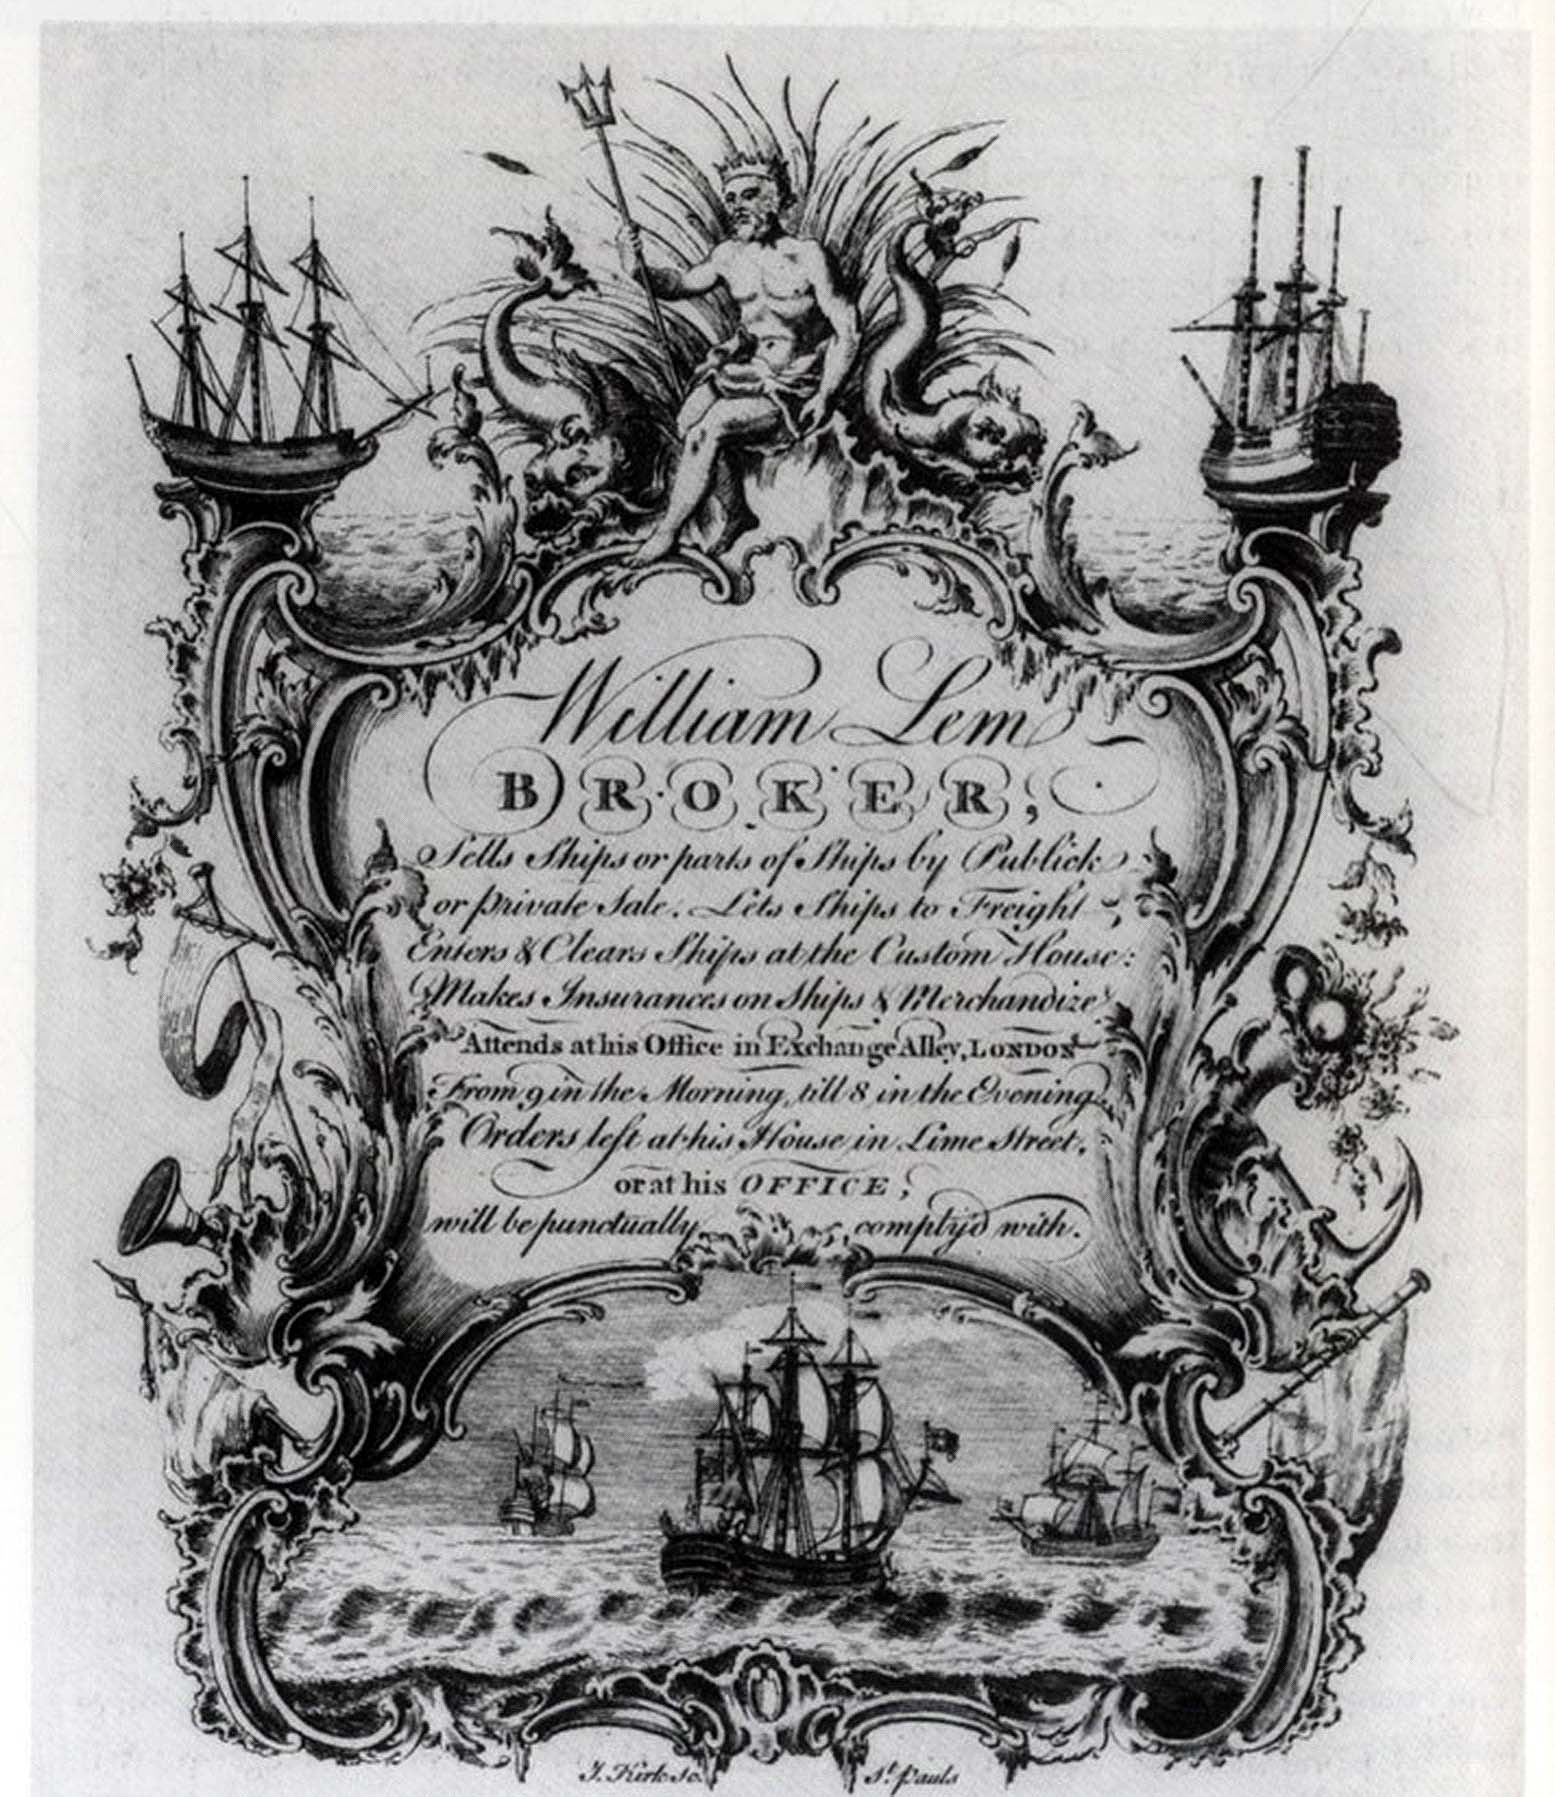 William Lem
BROKER,
Sells Ships or parts of Ships by Publick
or private Sale. Lets Ships to Freight,
Enters & Clears Ships at the Custom House:
Makes Insurances on Ships & Merchandize
Attends at his Office in Exchange Alley, LONDON
From 9 in the Morning, till 8 in the Evening.
Orders left at his House in Lime Street,
or at his OFFICE,
will be punctually comply'd with.
J. Kirk sc. St. Pauls